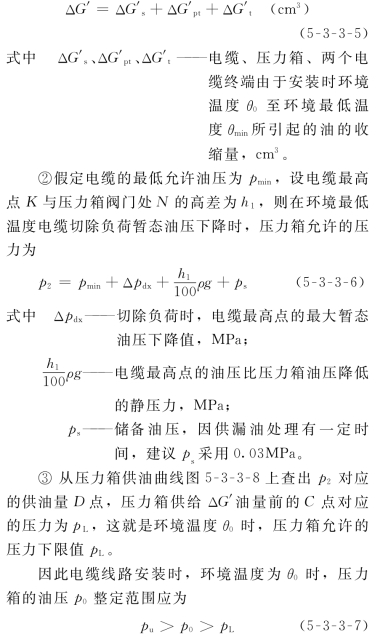 ΔG′ = ΔG′s + ΔG′pt + ΔG′t （cm³）
(5-3-3-5)
式中 ΔG′s、ΔG′pt、ΔG′t——电缆、压力箱、两个电
缆终端由于安装时环境
温度 θ₀ 至环境最低温
度 θmin 所引起的油的收
缩量，cm³。
②假定电缆的最低允许油压为 pmin，设电缆最高
点 K 与压力箱阀门处 N 的高差为 h₁，则在环境最低
温度电缆切除负荷暂态油压下降时，压力箱允许的压
力为
p₂ = pmin + Δpdx + h₁/100 ρg + ps （5-3-3-6）
式中 Δpdx——切除负荷时，电缆最高点的最大暂态
油压下降值，MPa；
h₁/100 ρg——电缆最高点的油压比压力箱油压降低
的静压力，MPa；
ps——储备油压，因供漏油处理有一定时
间，建议 ps 采用 0.03MPa。
③ 从压力箱供油曲线图 5-3-3-8 上查出 p₂ 对应
的供油量 D 点，压力箱供给 ΔG′油量前的 C 点对应
的压力为 pL，这就是环境温度 θ₀ 时，压力箱允许的
压力下限值 pL。
因此电缆线路安装时，环境温度为 θ₀ 时，压力
箱的油压 p₀ 整定范围应为
pu > p₀ > pL （5-3-3-7）